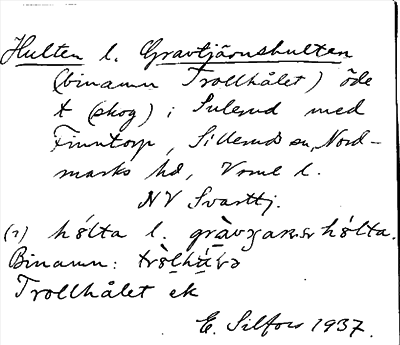 Hulten l. Gravtjärnshulten
(binamn Trollhålet) öde
t (skog) i Sulerud med
Finntorp, Sillerud sn, Nord-
marks hd, Vrml l.
NV Svarttj.
(1) hólta l. hólta.
Binamn:
Trollhålet ek
E. Silfors 1937.